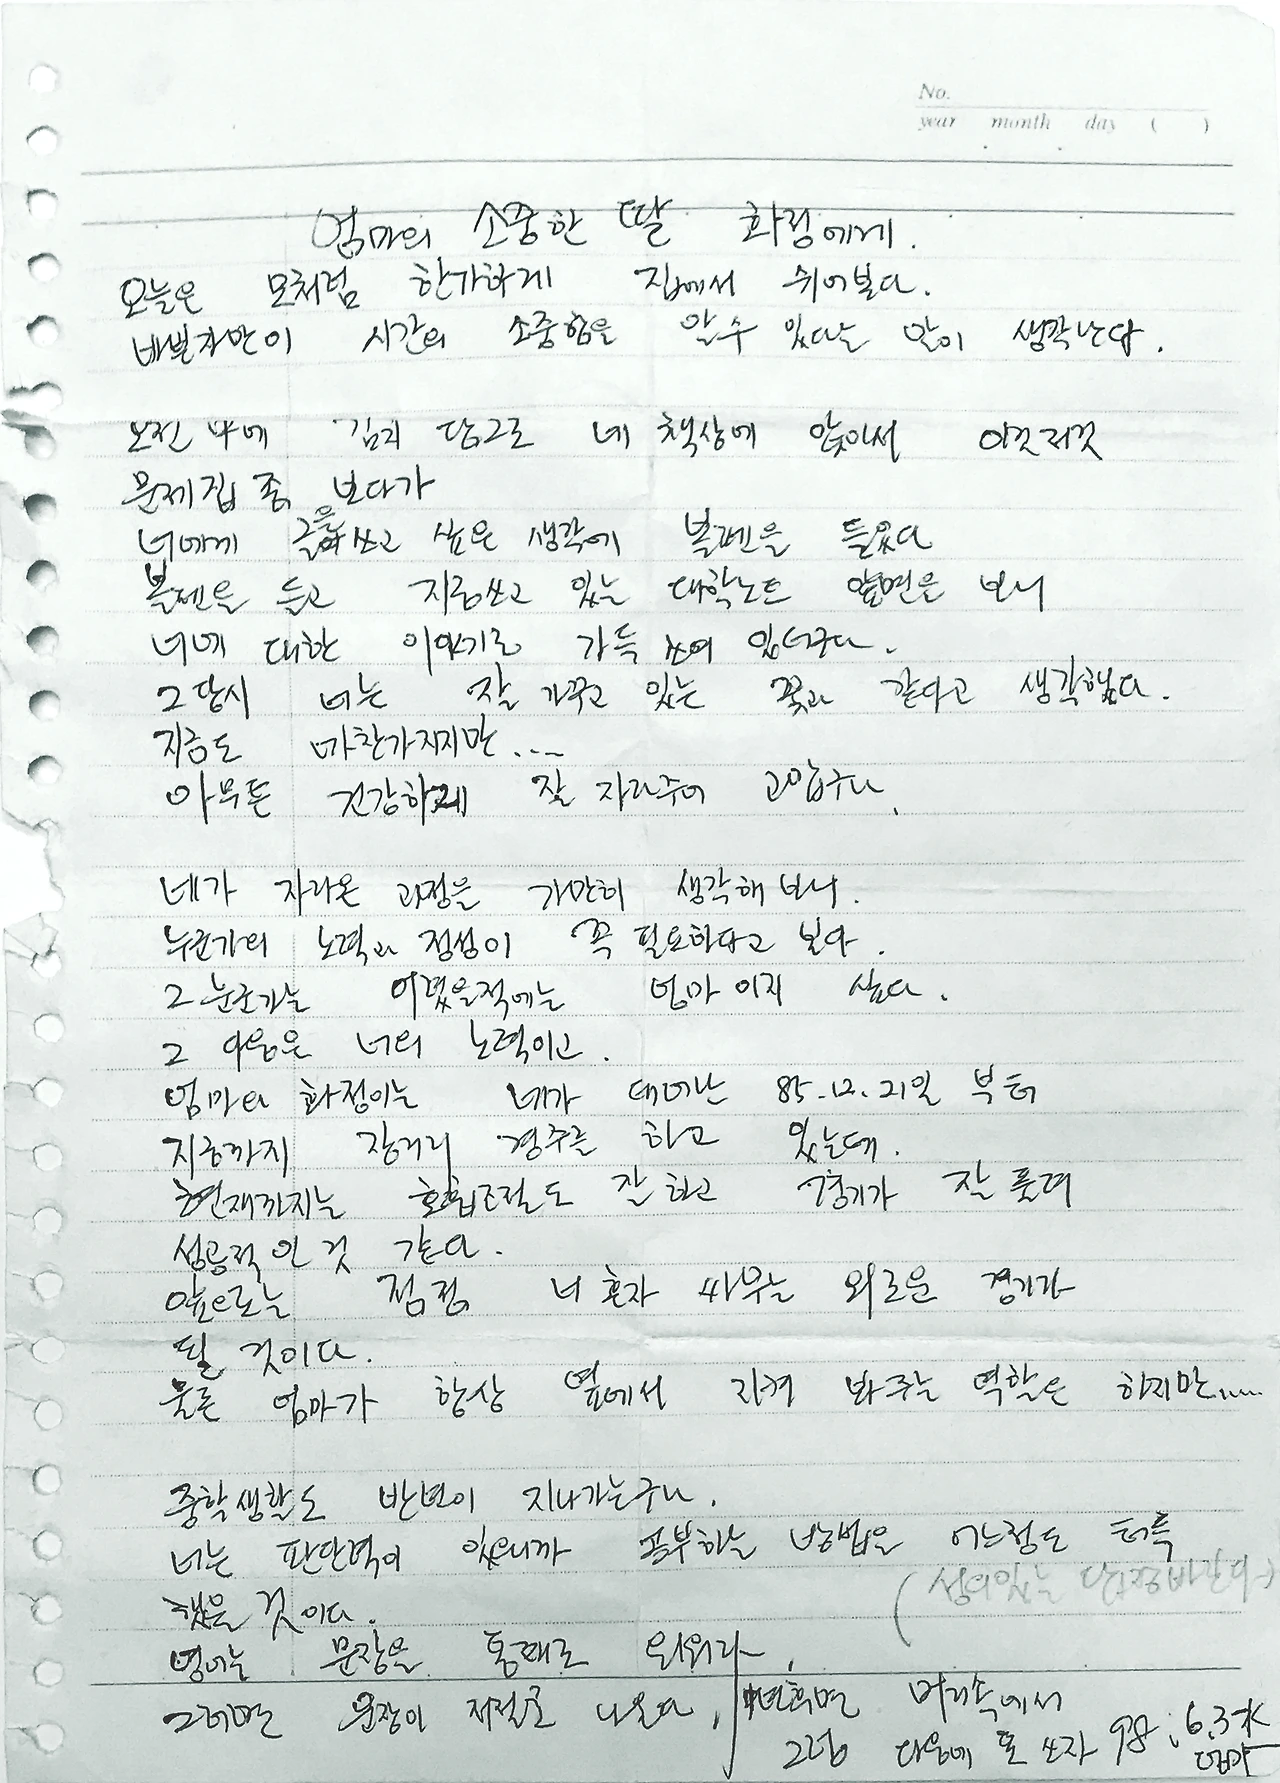 No.
year month day ( )
엄마의 소중한 딸 화정에게.
오늘은 모처럼 한가하게 집에서 쉬어본다.
바쁜자만이 시간의 소중함을 알수 있다는 말이 생각난다.
오전 中에 김치 담그고 네 책상에 앉아서 이것저것
문제집 좀 보다가
너에게 글을 쓰고 싶은 생각에 볼펜을 들었다
볼펜을 들고 지금쓰고 있는 대학노트 앞면을 보니
너에 대한 이야기로 가득 쓰여 있더구나.
그 당시 너는 잘 가꾸고 있는 꽃과 같다고 생각했다.
지금도 마찬가지지만....
아무튼 건강하게 잘 자라주어 고맙구나.
네가 자라온 과정을 가만히 생각해 보니.
누군가의 노력과 정성이 꼭 필요하다고 보아.
그 누군가는 어렸을적에는 엄마이지 싶다.
그 다음은 너의 노력이고.
엄마의 화정이는 네가 태어난 85.12.21일 부터
지금까지 장거리 경주를 하고 있는데.
현재까지는 호흡조절도 잘 하고 경기가 잘 풀려
성공적인 것 같다.
앞으로는 점점 너 혼자 싸우는 외로운 경기가
될 것이다.
물론 엄마가 항상 옆에서 지켜 봐주는 역할은 하지만.....
중학생활도 반년이 지나가는구나.
너는 판단력이 있으니까 공부하는 방법을 어느정도 터득
했을 것이다.
(성의있는 답장바란다)
영어는 문장을 통째로 외워라.
그러면 문장이 저절로 나온다, 1년후면 머리속에서
그럼 다음에 또 쓰자 98. 6. 3 水
엄마